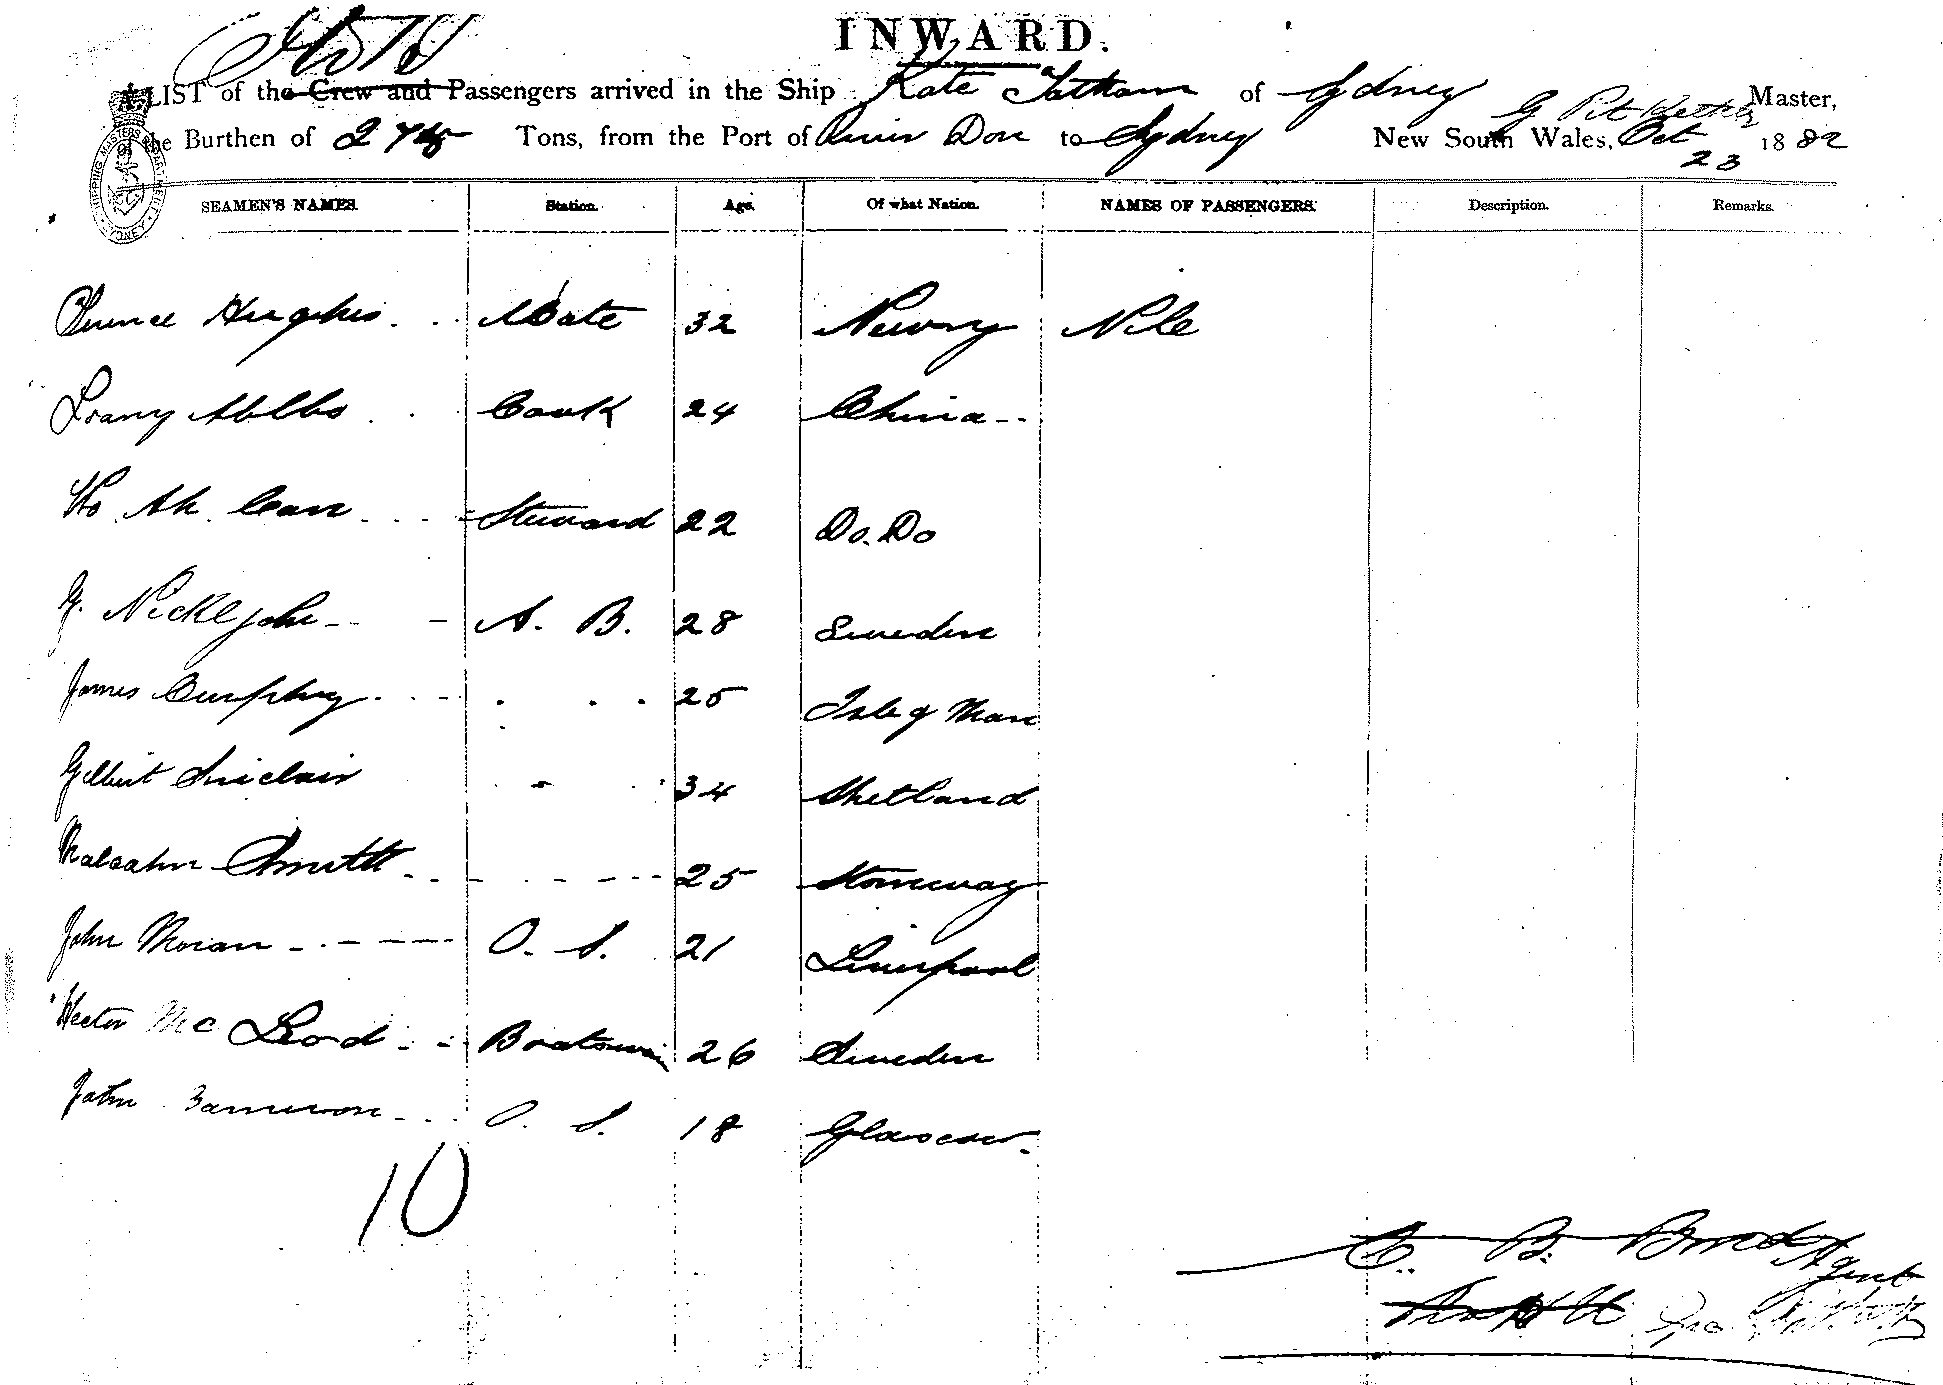 INWARD.
A LIST of the Crew and Passengers arrived in the Ship Kate Tatham of Sydney Master,
of the Burthen of Tons, from the Port of River Don to Sydney New South Wales, Oct 23 1882
SEAMEN'S NAMES. Station. Age. Of what Nation. NAMES OF PASSENGERS. Description. Remarks.
Hughes Mate 32 Newry Nile
Cook 24 China
Ah Steward 22 Do. Do
A. B. 28 Sweden
James Curphey 25 Isle of Man
Gilbert Sinclair 34 Shetland
Malcolm Smith 25 Stornoway
John Moran O. S. 21 Liverpool
Hector McLeod Boatswain 26 Sweden
John O. S. 18 Glasgow
10
C. B. Bond Agent